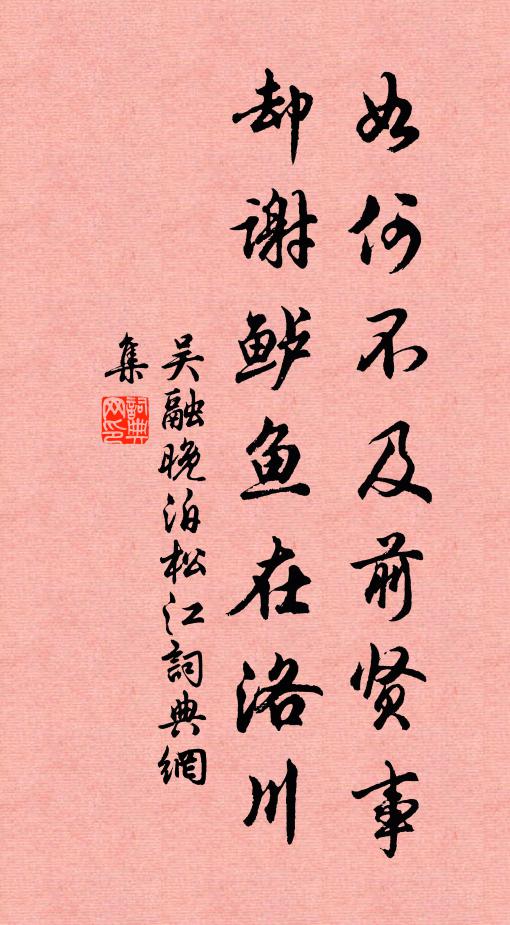 如何不及前贤事
却谢鲈鱼在洛川
吴融晚泊松江詞典網
集
詞典
网印